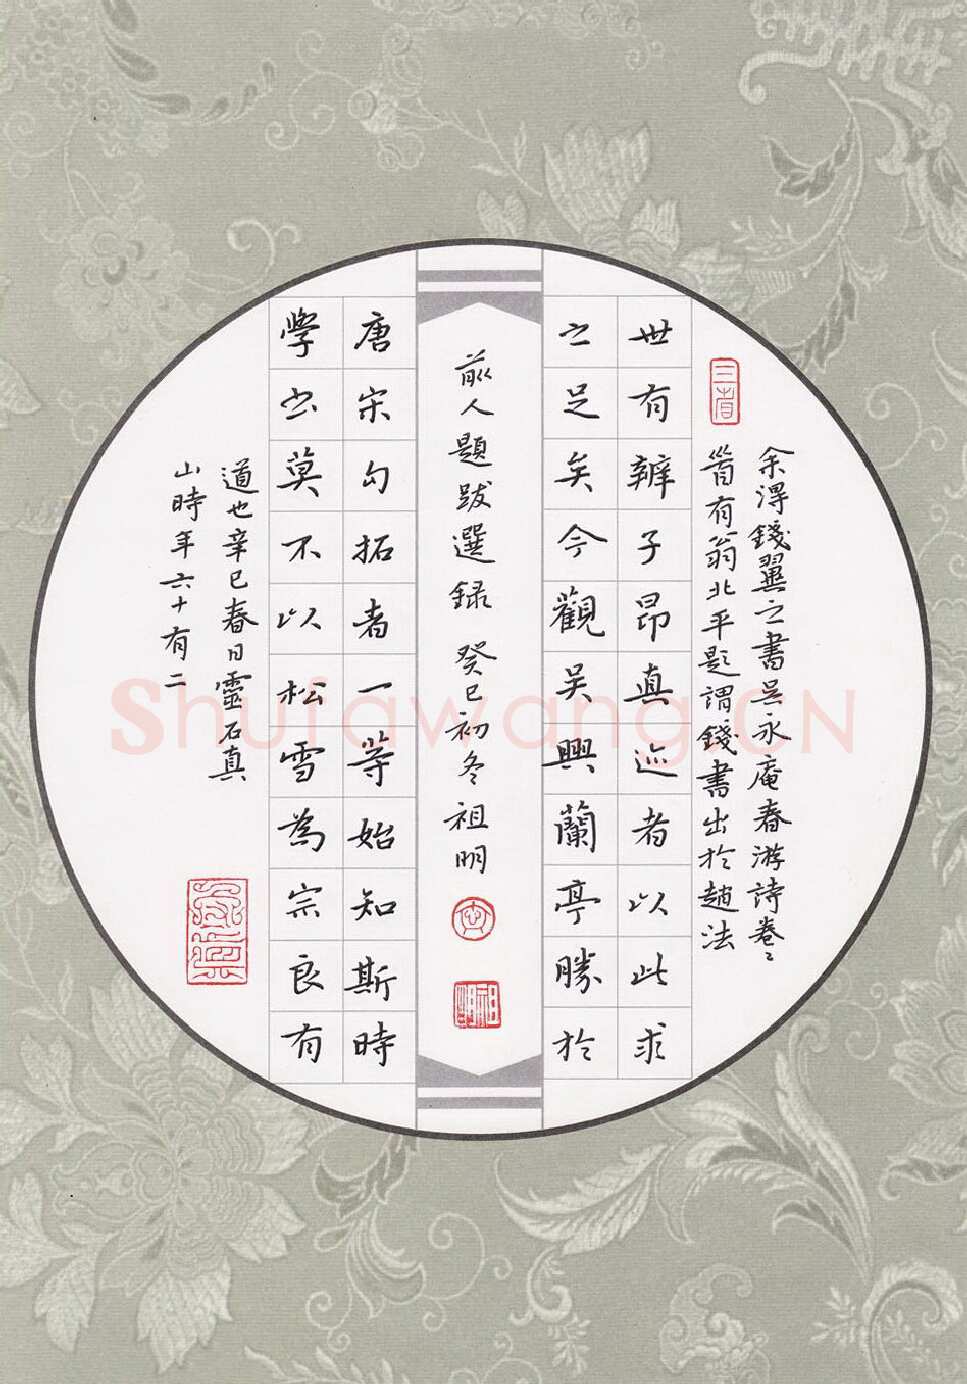 余得錢翼之書吳永庵春游詩卷〻
首有翁北平題謂錢書出於趙法
世有辨子昂真迹者以此求
之足矣今觀吳興蘭亭勝於
前人題跋選錄 癸巳初冬祖明
唐宋勾拓者一等始知斯時
學书莫不以松雪為宗良有
道也辛巳春日靈石真
山時年六十有二
Shufawang.CN